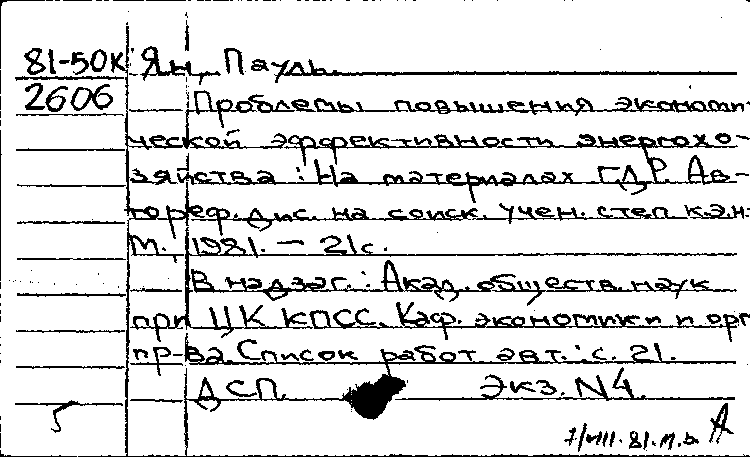 81-50к Ян, Пауль.
2606 Проблемы повышения экономи
ческой эффективности энергохо-
зяйства : На материалах ГДР. Ав-
тореф. дис. на соиск. учен. степ. к.э.н.
М., 1981. — 21с.
В надзаг.: Акад. обществ. наук
при ЦК КПСС. Каф. экономики и орг
пр-ва. Список работ авт.: с. 21.
ДСП. Экз. N4.
5
7/VIII.81.